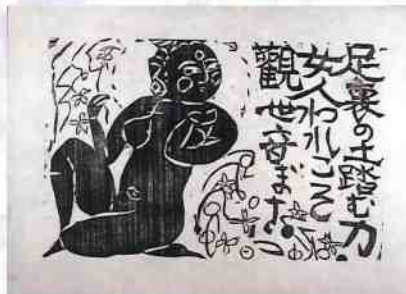 足裏の土踏む力
女人われこそ
觀世音ぼさつ